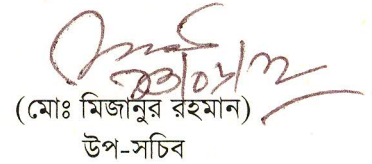 (মোঃ মিজানুর রহমান)
উপ-সচিব